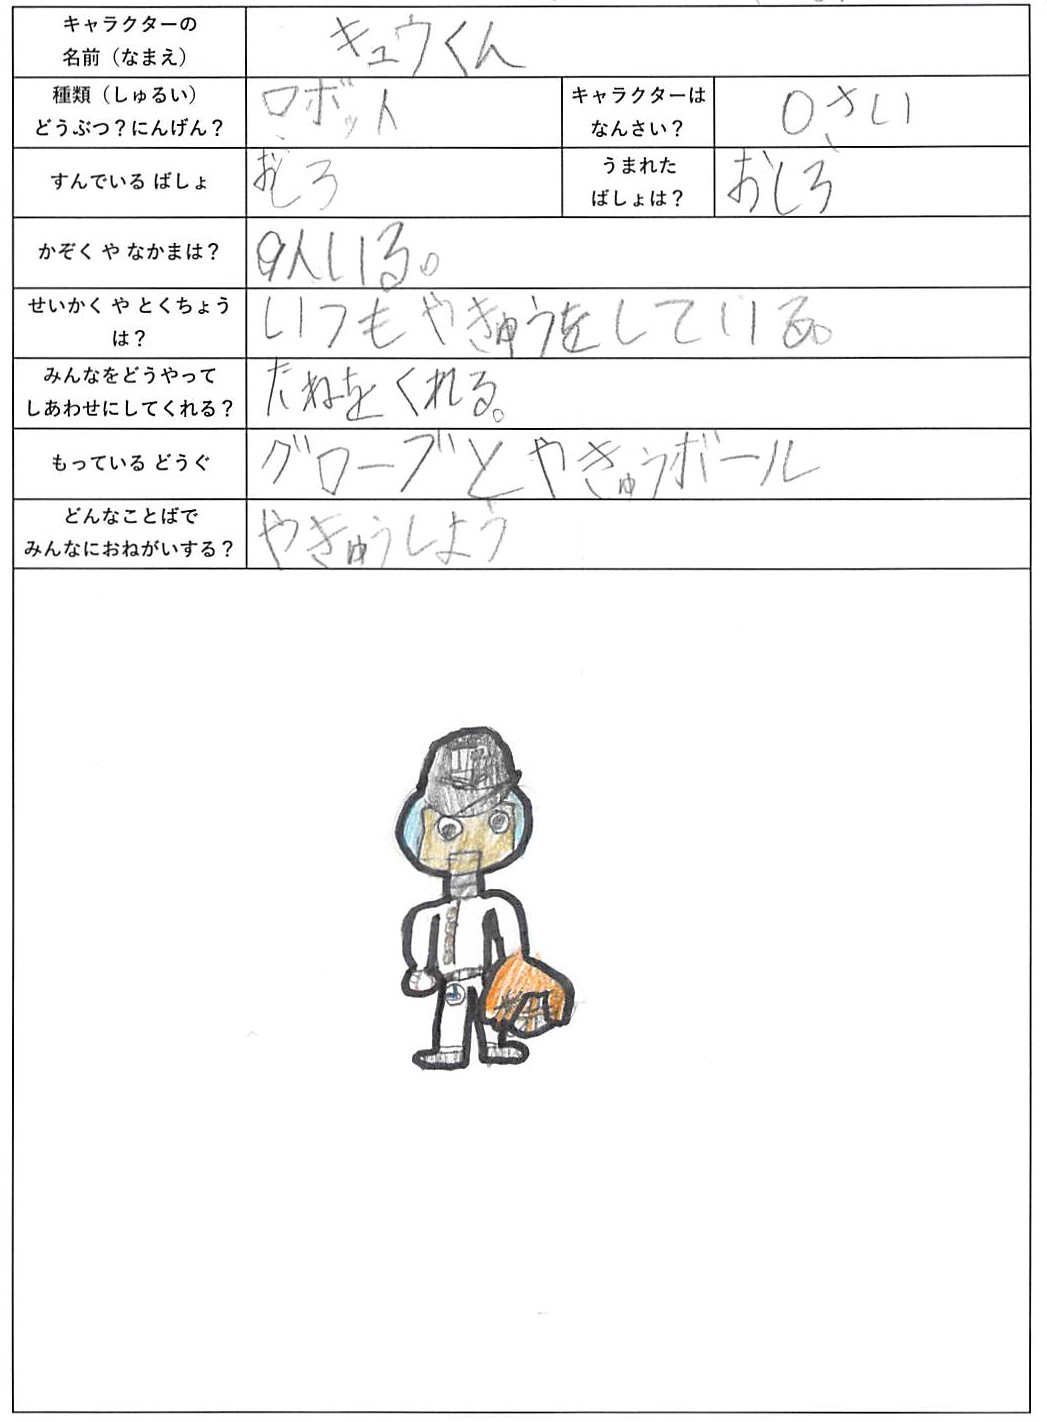 キャラクターの
名前（なまえ）
キュウくん
種類（しゅるい）
どうぶつ？にんげん？
ロボット
キャラクターは
なんさい？
0さい
すんでいる ばしょ
おしろ
うまれた
ばしょは？
おしろ
かぞく や なかまは？
9人いる。
せいかく や とくちょう
は？
いつもやきゅうをしている。
みんなをどうやって
しあわせにしてくれる？
たねをくれる。
もっている どうぐ
グローブとやきゅうボール
どんなことばで
みんなにおねがいする？
やきゅうしよう